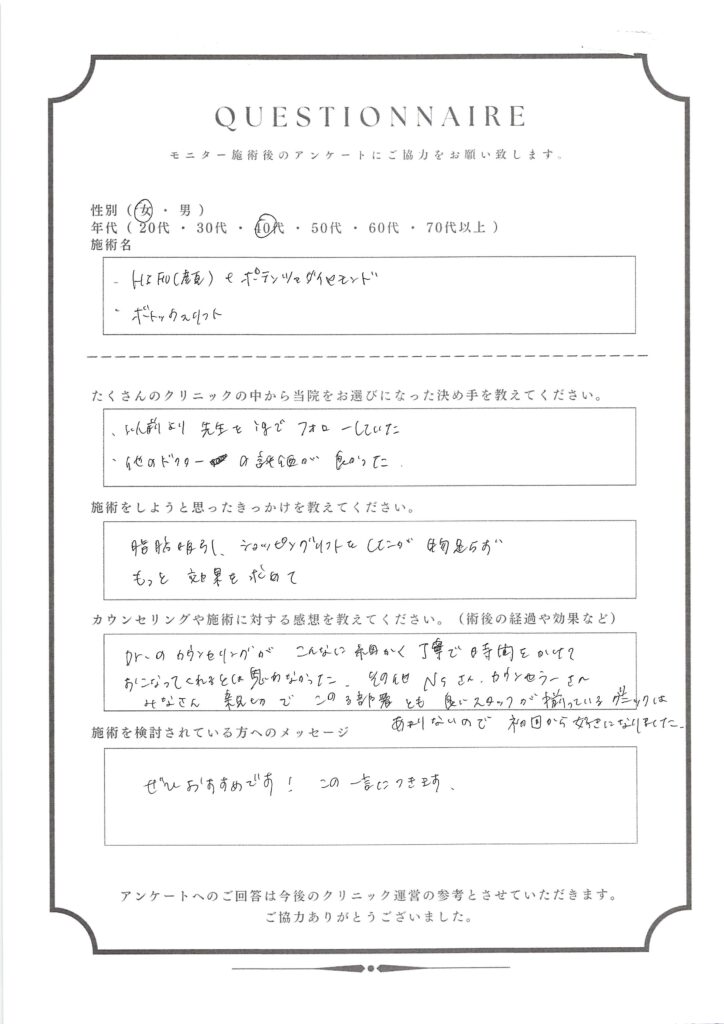 QUESTIONNAIRE
モニター施術後のアンケートにご協力をお願い致します。
性別 ( 女 ・ 男 )
年代 ( 20代 ・ 30代 ・ 40代 ・ 50代 ・ 60代 ・ 70代以上 )
施術名
- HIFU(顔) + ポテンツァダイヤモンド
・ ボトックスリフト
たくさんのクリニックの中から当院をお選びになった決め手を教えてください。
、以前より 先生を igで フォローしていた
・他のドクター の評価が 良かった.
施術をしようと思ったきっかけを教えてください。
脂肪吸引、ショッピングリフトをしたが 物足らず
もっと 効果を求めて
カウンセリングや施術に対する感想を教えてください。（術後の経過や効果など）
Dr.のカウンセリングが こんなに 細かく 丁寧で 時間を かけて
おこなってくれるとは 思わなかった、その他 Nsさん、カウンセラーさん
みなさん 親切で この3部署 とも 良いスタッフが 揃っている クリニックは
あまりないので 初回から 好きになりました.
施術を検討されている方へのメッセージ
ぜひ おすすめです！ この 一言につきます、
アンケートへのご回答は今後のクリニック運営の参考とさせていただきます。
ご協力ありがとうございました。